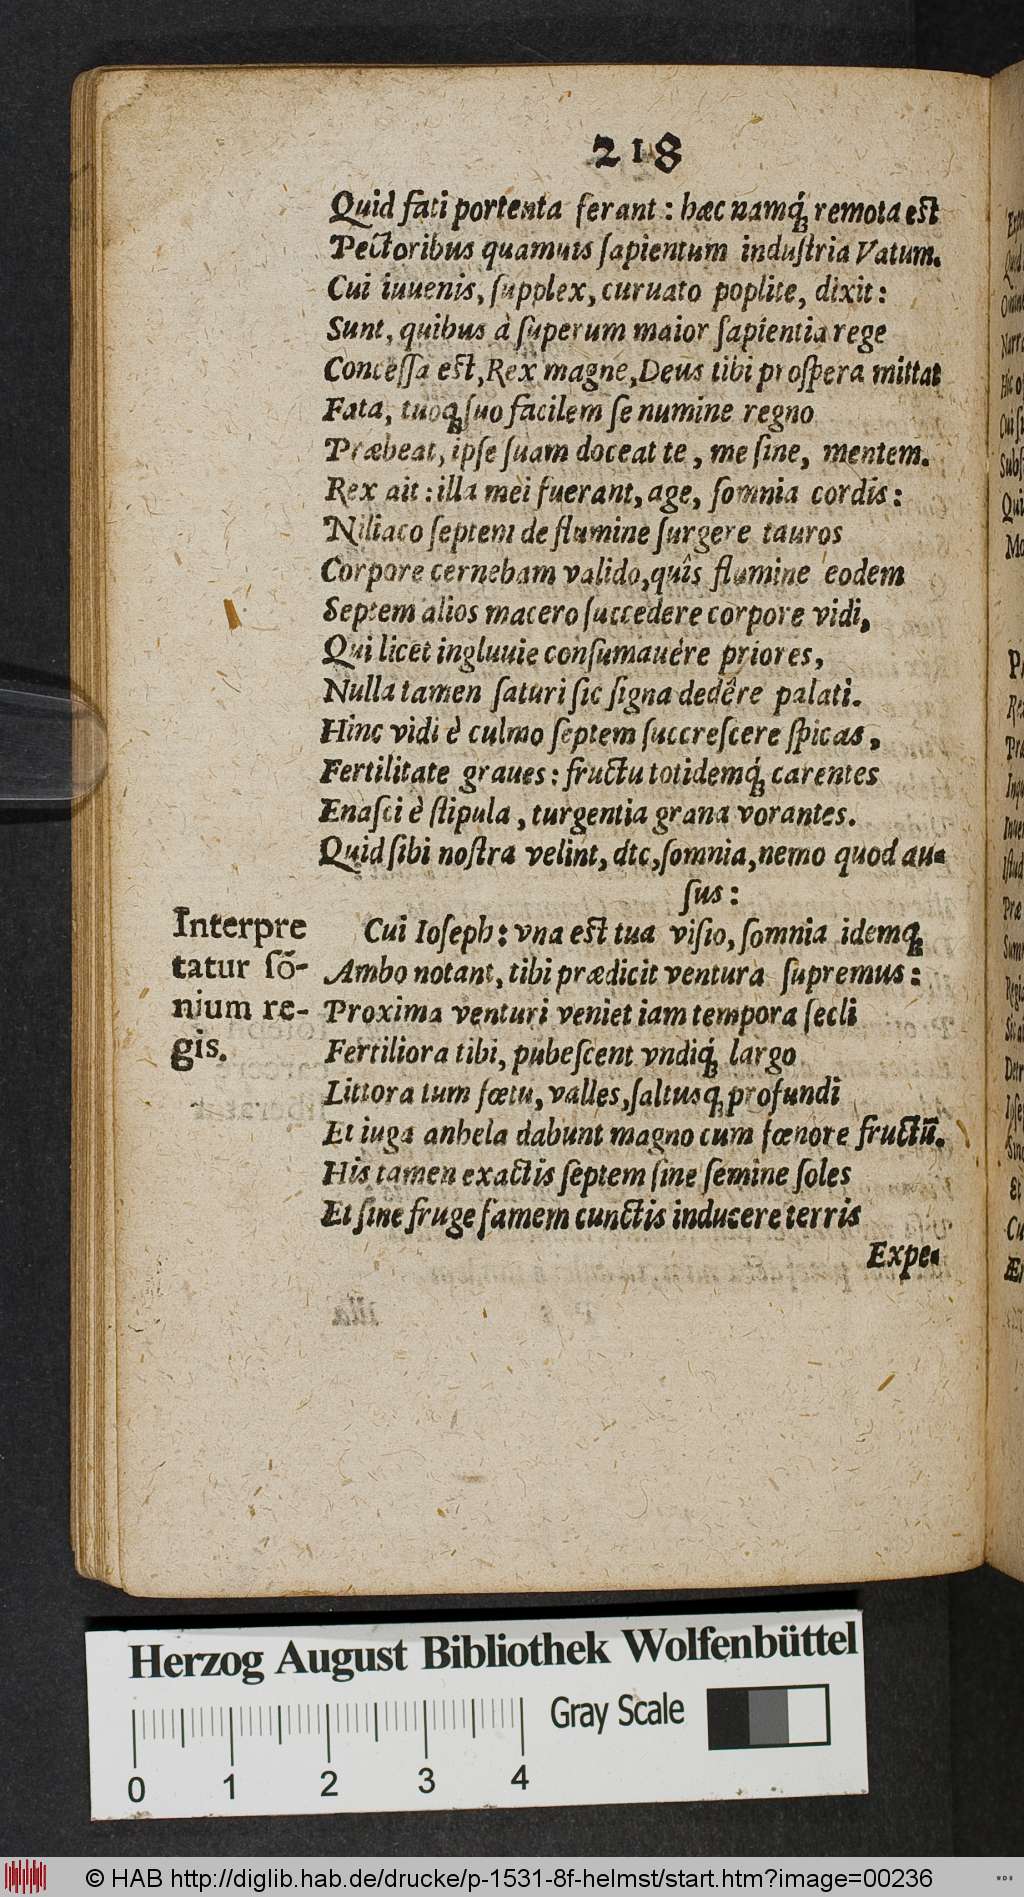 218
Quid fati portenta ferant: hæc namq́; remota est
Pectoribus quamuis ſapientum induſtria Vatum.
Cui iuuenis, ſupplex, curuato poplite, dixit:
Sunt, quibus à ſuperum maior ſapientia rege
Conceſſa est, Rex magne, Deus tibi proſpera mittat
Fata, tuoq; ſuo facilem ſe numine regno
Præbeat, ipſe ſuam doceat te, me ſine, mentem.
Rex ait: illa mei fuerant, age, ſomnia cordis:
Niliaco ſeptem de flumine ſurgere tauros
Corpore cernebam valido, quîs flumine eodem
Septem alios macero ſuccedere corpore vidi,
Qui licet ingluuie conſumauère priores,
Nulla tamen ſaturi ſic ſigna dedêre palati.
Hinc vidi è culmo ſeptem ſuccreſcere ſpicas,
Fertilitate graues: fructu totidemq́; carentes
Enaſci è ſtipula, turgentia grana vorantes.
Quid ſibi noſtra velint, dtc, ſomnia, nemo quod au-
ſus:
Interpre
tatur ſõ-
nium re-
gis.
Cui Ioſeph: vna est tua viſio, ſomnia idemq;
Ambo notant, tibi prædicit ventura ſupremus:
Proxima venturi veniet iam tempora ſecli
Fertiliora tibi, pubeſcent vndiq́; largo
Littora tum fœtu, valles, ſaltusq; profundi
Et iuga anhela dabunt magno cum fœnore fructũ.
His tamen exactis ſeptem ſine ſemine ſoles
Et ſine fruge famem cunctis inducere terris
Expe-
Herzog August Bibliothek Wolfenbüttel
Gray Scale
0 1 2 3 4
© HAB http://diglib.hab.de/drucke/p-1531-8f-helmst/start.htm?image=00236